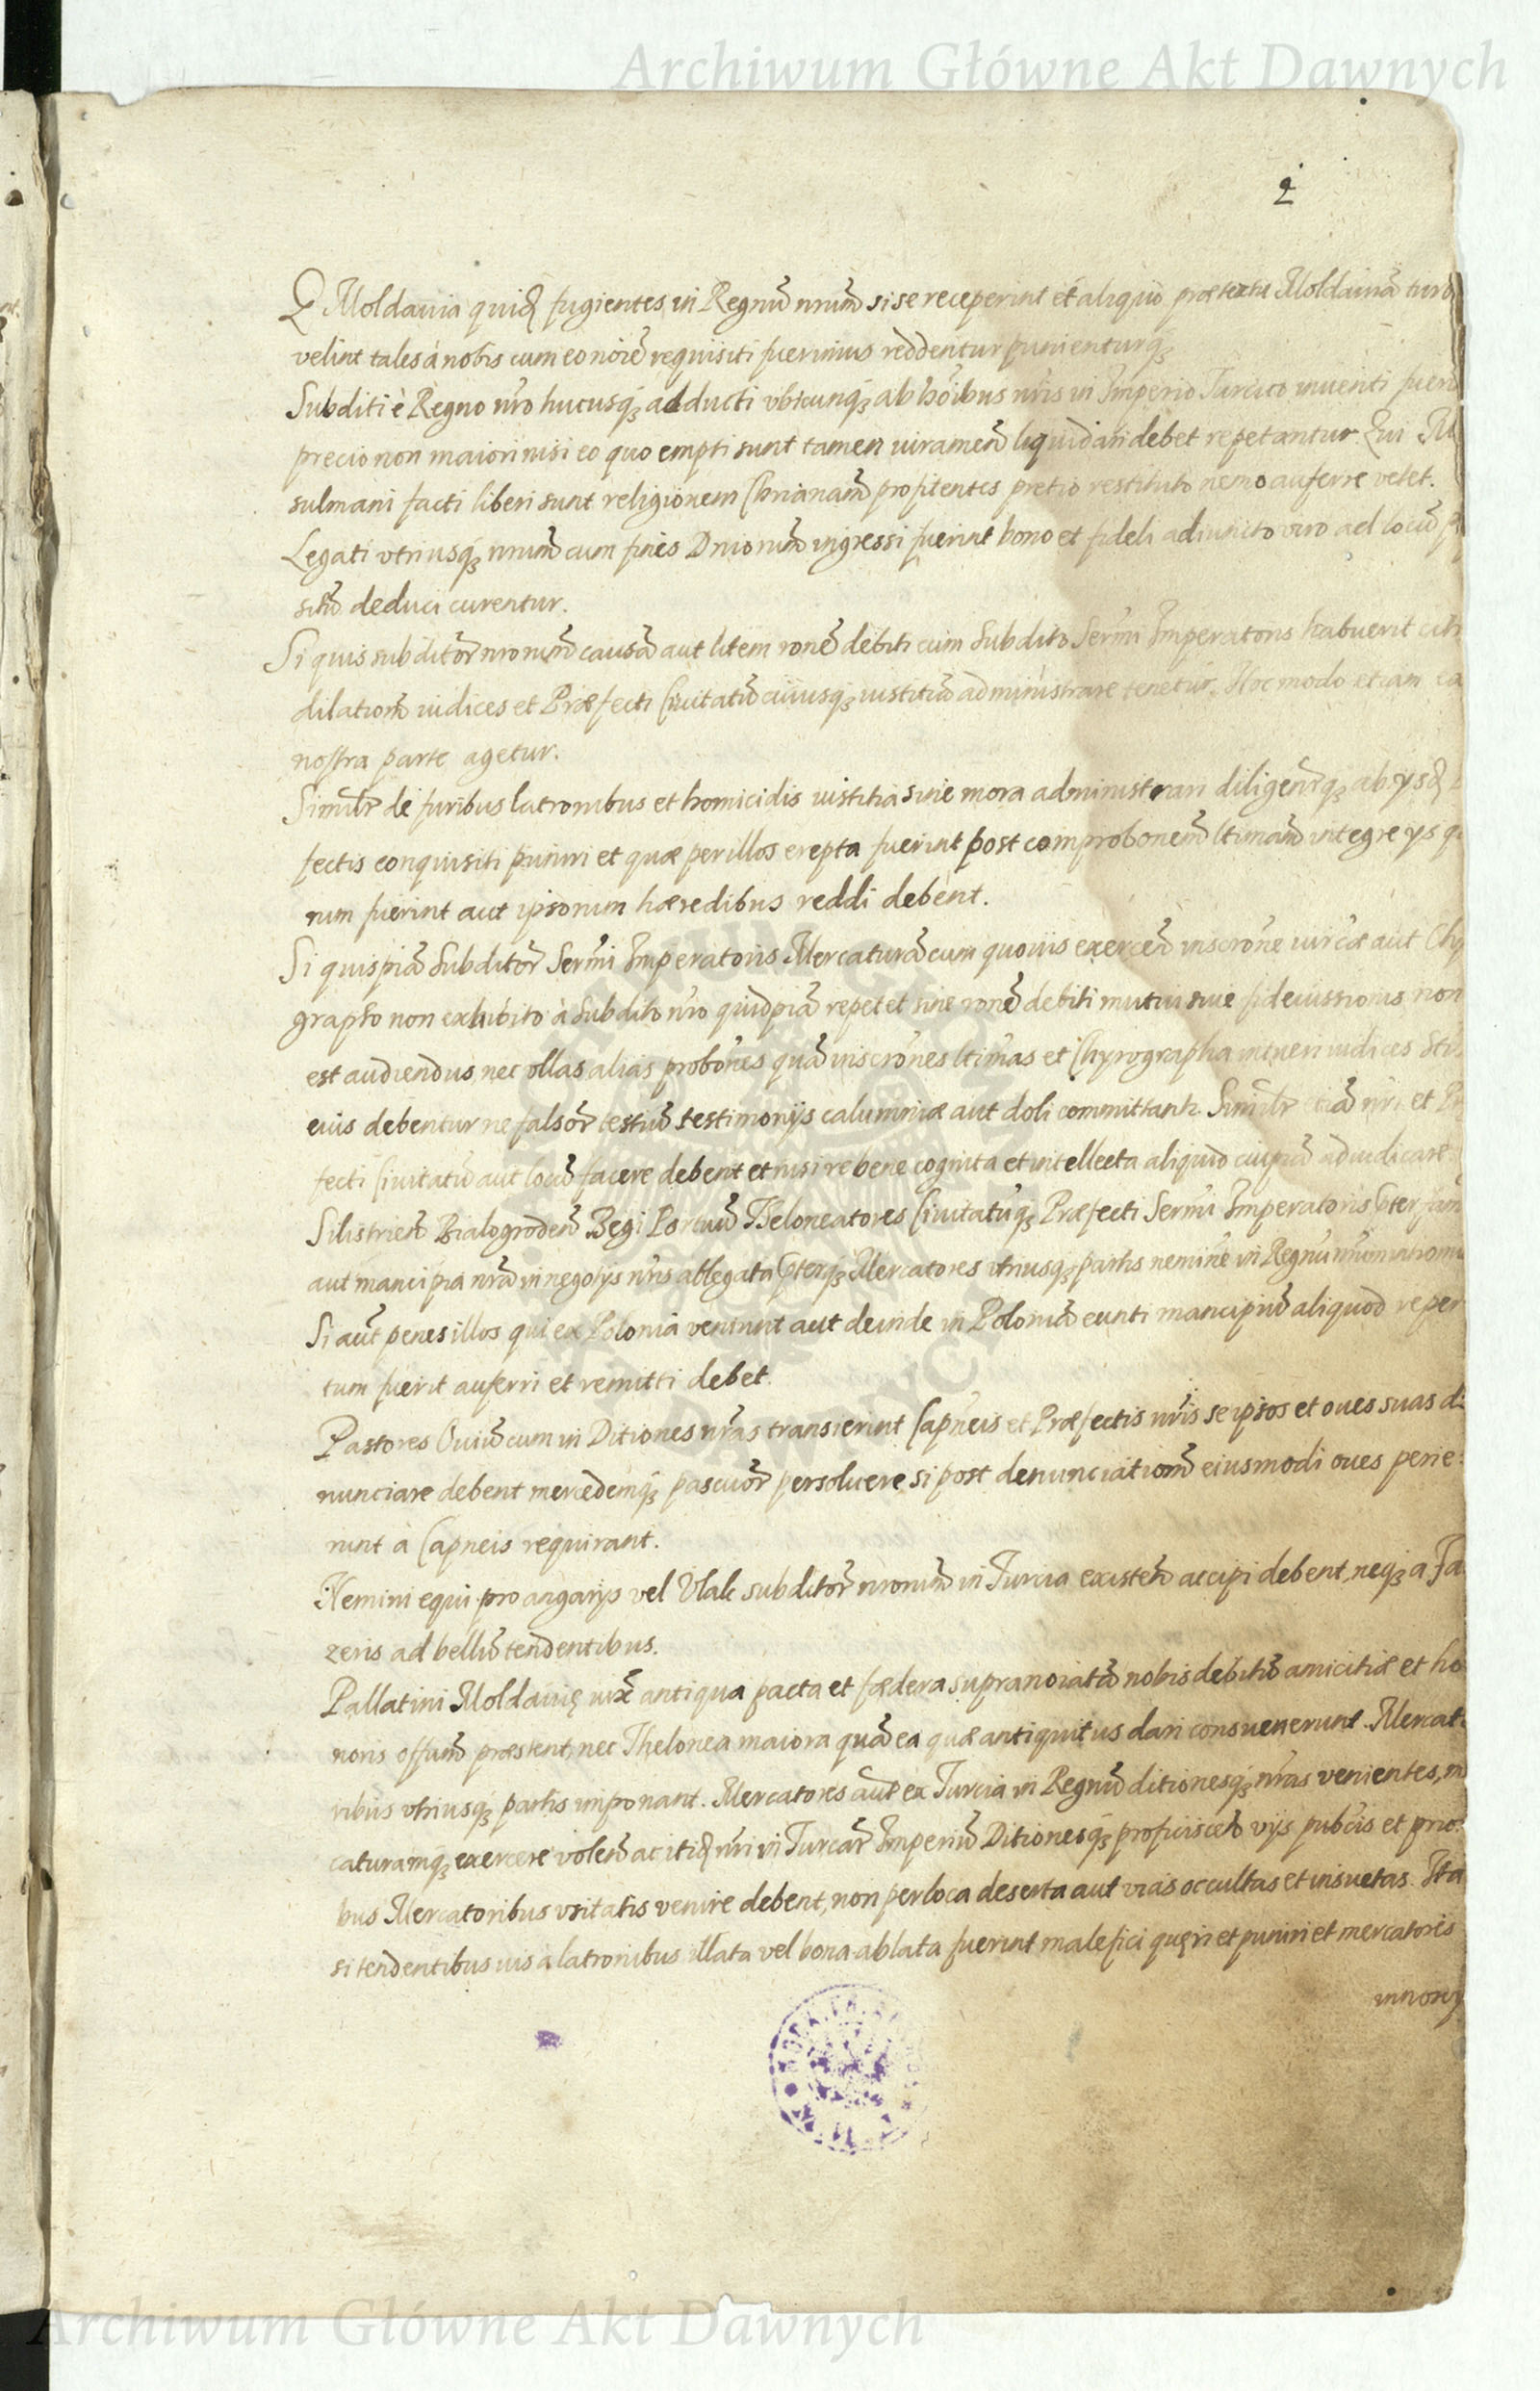 Archiwum Główne Akt Dawnych
2
E Moldauia quidẽ fugientes in Regnũ nrum si se receperint et aliquo praetextu Moldauiã turb
velint tales à nobis cum eo noiẽ requisiti fuerimus reddentur punienturq3
Subditi è Regno nro hucusq3 adducti vbicunq3 ab hoibus nris in Imperio Turcico inuenti fuer
precio non maiori nisi eo quo empti sunt tamen iuramen liquidari debet repetantur. Qui Mu
sulmani facti liberi sunt religionem Chrianam profitentes pretio restituto nemo auferre vetet.
Legati vtriusq3 nrum cum fines Dniorum ingressi fuerint bono et fideli adiuncto viro ad locũ p
sitũ deduci curentur.
Si quis subditor nrorum causã aut litem ronẽ debiti cum Subdito Sermi Imperatoris habuerit citr
dilationẽ iudices et Praefecti Ciuitatũ cuiusq3 iustitiã administrare tenetur. Hoc modo etiam ea
nostra parte agetur.
Similr de furibus latronibus et homicidis iustitia sine mora administrari diligenterq3 ab ys
fectis conquisiti puniri et quae per illos erepta fuerint post comprobonem ltimam integre ys q
rum fuerint aut ipsorum haeredibus reddi debent.
Si quispiã Subditor Sermi Imperatoris Mercaturã cum quouis exercen inscrone iurcae aut Chy
grapho non exhibito à Subdito nro quidpiã repetet siue ronẽ debiti mutui siue fideiussionis non
est audiendus, nec ullas alias probones quã inscrones ltimas et Chyrographa intueri iudices Sti
eius debentur ne falsor testiũ testimonijs calumniae aut doli committantr. Similr etiã nri et Prae
fecti Ciuitatũ aut locũ facere debent et nisi re bene cognita et intellecta aliquid cuipiã adiudicare
Silistrien Bialogroden Begi Portuũ Theloneatores Ciuitatũq3 Praefecti Sermi Imperatoris pter fam
aut mancipia nra in negotijs nris ablegata pterq3 Mercatores vtriusq3 partis neminẽ in Regnũ nrum intromi
Si aut penes illos qui ex Polonia veniunt aut deinde in Poloniã eunti mancipiũ aliquod reper
tum fuerit auferri et remitti debet.
Pastores Ouiũ cum in Ditiones nras transierint Capneis et Praefectis nris se ipsos et oues suas d:
nunciare debent mercedemq3 pascuor persoluere si post denunciationẽ eiusmodi oues perie:
runt à Capneis requirant.
Nemini equi pro angarijs vel Vlak subditor nrorum in Turcia existen accipi debent, neq3 a Ja
zeris ad bellũ tendentibus.
Pallatini Moldauię iuxẽ antiqua pacta et faedera supranoiata nobis debitũ amicitiae et ho
noris offum praestent, nec Thelonea maiora quã ea quae antiquitus dari consueuerunt. Mercat.
ribus vtriusq3 partis imponant. Mercatores aut ex Turcia in Regnũ ditionesq3 nras venientes, m
caturamq3 exercere volen ac itidẽ nri in Turcar Imperiũ Ditionesq3 proficiscen vijs pubcis et prio:
bus Mercatoribus vsitatis venire debent, non per loca deserta aut vias occultas et insuetas. Ita
si tendentibus uis a latronibus illata vel bona ablata fuerint malefici quęri et puniri et mercatoris
innoxy
Archiwum Główne Akt Dawnych